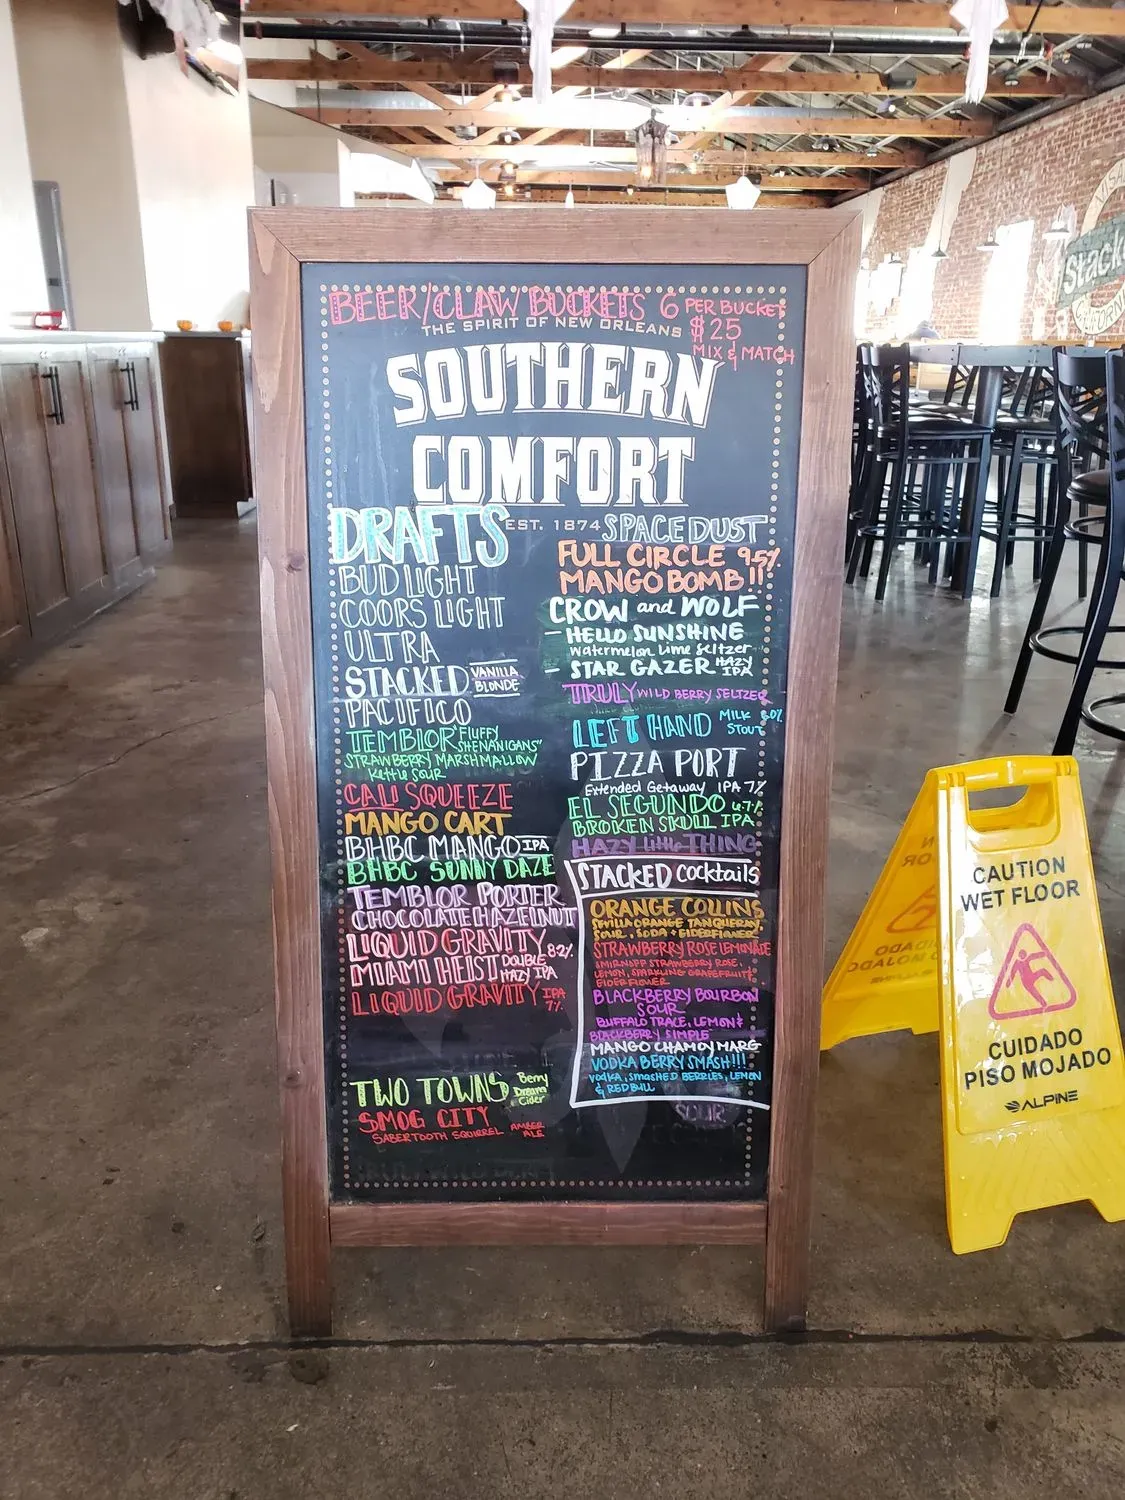 BEER/CLAW BUCKETS 6 PER BUCKET
$25
MIX & MATCH
THE SPIRIT OF NEW ORLEANS
SOUTHERN
COMFORT
EST. 1874
DRAFTS
BUD LIGHT
COORS LIGHT
ULTRA
STACKED VANILLA
BLONDE
PACIFICO
TEMBLOR "FLUFFY
SHENANIGANS"
STRAWBERRY MARSHMALLOW
Kettle SOUR
CALI SQUEEZE
MANGO CART
BHBC MANGO IPA
BHBC SUNNY DAZE
TEMBLOR PORTER
CHOCOLATE HAZELNUT
LIQUID GRAVITY 8.2%
MIAMI HEIST DOUBLE
HAZY IPA
LIQUID GRAVITY IPA
7%
TWO TOWNS Berry
Dream
Cider
SMOG CITY
SABERTOOTH SQUIRREL AMBER
ALE
SPACE DUST
FULL CIRCLE 9.5%
MANGO BOMB!!
CROW and WOLF
- HELLO SUNSHINE
Watermelon Lime Seltzer
- STAR GAZER HAZY
IPA
TRULY WILD BERRY SELTZER
LEFT HAND MILK
STOUT
PIZZA PORT
Extended Getaway IPA 7%
EL SEGUNDO 6.7%
BROKEN SKULL IPA
HAZY Little THING
STACKED Cocktails
ORANGE COLLINS
SEVILLA ORANGE TANQUERAY,
SOUR, SODA + ELDERFLOWER
STRAWBERRY ROSE LEMONADE
SMIRNOFF STRAWBERRY ROSE,
LEMON, SPARKLING GRAPEFRUIT &
ELDERFLOWER
BLACKBERRY BOURBON
SOUR
BUFFALO TRACE, LEMON &
BLACKBERRY SIMPLE
MANGO CHAMOY MARG
VODKA BERRY SMASH!!!
VODKA, SMASHED BERRIES, LEMON
& REDBULL
SOUR
CAUTION
WET FLOOR
CUIDADO
PISO MOJADO
ALPINE